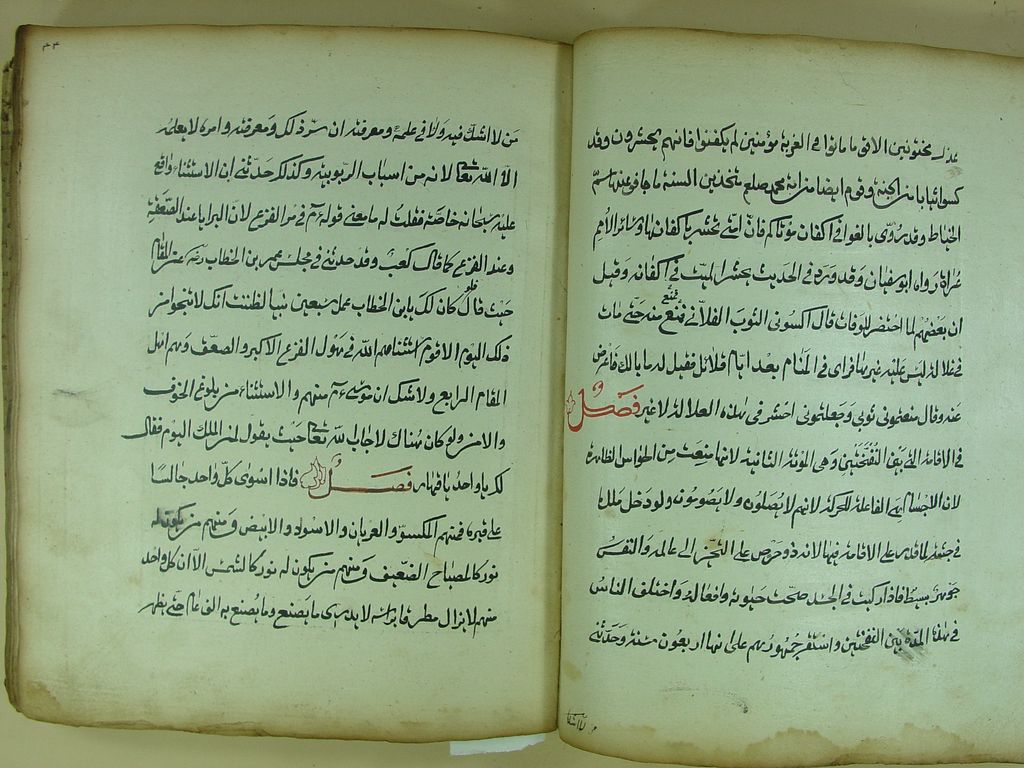 غدل مختونين الا قوما ماتوا في الغربة مؤمنين لم يكفنوا فانهم يحشرون وقد
كسوا ثيابا من الجنة وقوم ايضا من امة محمد صلعم متخذين السنة ما جافو عنها سم
الخياط وقد روى بالغوا في اكفان موتاكم فان امتي تحشر باكفانها وسائر الامم
عراة رواه ابو سفيان وقد ورد في الحديث يحشر الميت في اكفانه وقيل
ان بعضهم لما احتضر للوفات قال اكسوني الثوب الفلاني فمنع منه حتى مات
في غلالة ليس عليه غيرها فراى في المنام بعد ايام قلائل فقيل له ما بالك فاعرض
عنه وقال منعتموني ثوبي وجعلتموني احشر في هذه الغلالة لا غير فصل
في الاقامة التي بين النفختين وهي الموتة الثانية لانها منعت من الحواس الظاهرة
لان الاجسام هي الفاعلة للحركة لانهم لا يصلون ولا يصومون ولو دخل ملك
في جثة لما قدر على الاقامة فيها لانه ذو حرص على التحيز الى عالمه والنفس
جوهر بسيط فاذا ركبت في الجسد صحت حيوته وافعاله واختلف الناس
في هذه المدة بين النفختين واستقر جمهورهم على انها اربعون سنة وحدثني
من لا اشك فيه ولا في علمه ومعرفته ان سر ذلك ومعرفته وامره لا يعلمه
الا الله تعالى لانه من اسباب الربوبية وكذلك حدثني ان الاستثناء واقع
عليه سبحانه خاصة فقلت له ما معنى قوله عم في مر الفزع لان البرايا عند الصعقة
وعند الفزع كما قال كعب وقد حدثني في مجلس عمر بن الخطاب رضه عن المقام
حيث قال لو كان لك يا ابن الخطاب عمل سبعين نبيا لظننت انك لا تنجو من
ذلك اليوم الا قوم استثناهم الله في هول الفزع الاكبر والصعق وهم اهل
المقام الرابع ولا شك ان موسى عم منهم والاستثناء من بلوغ الخوف
والامن ولو كان هناك لاجاب لله تعالى حيث يقول لمن الملك اليوم فقال
لك يا واحد يا قهار فصل فاذا استوى كل واحد جالسا
على قبره فمنهم المكسو والعريان والاسود والابيض ومنهم من يكون له
نور كالمصباح الضعيف ومنهم من يكون له نور كالشمس الا ان كل واحد
منهم لا يزال مطرقا براسه لا يدري ما يصنع وما يصنع به الف عام حتى يظهر